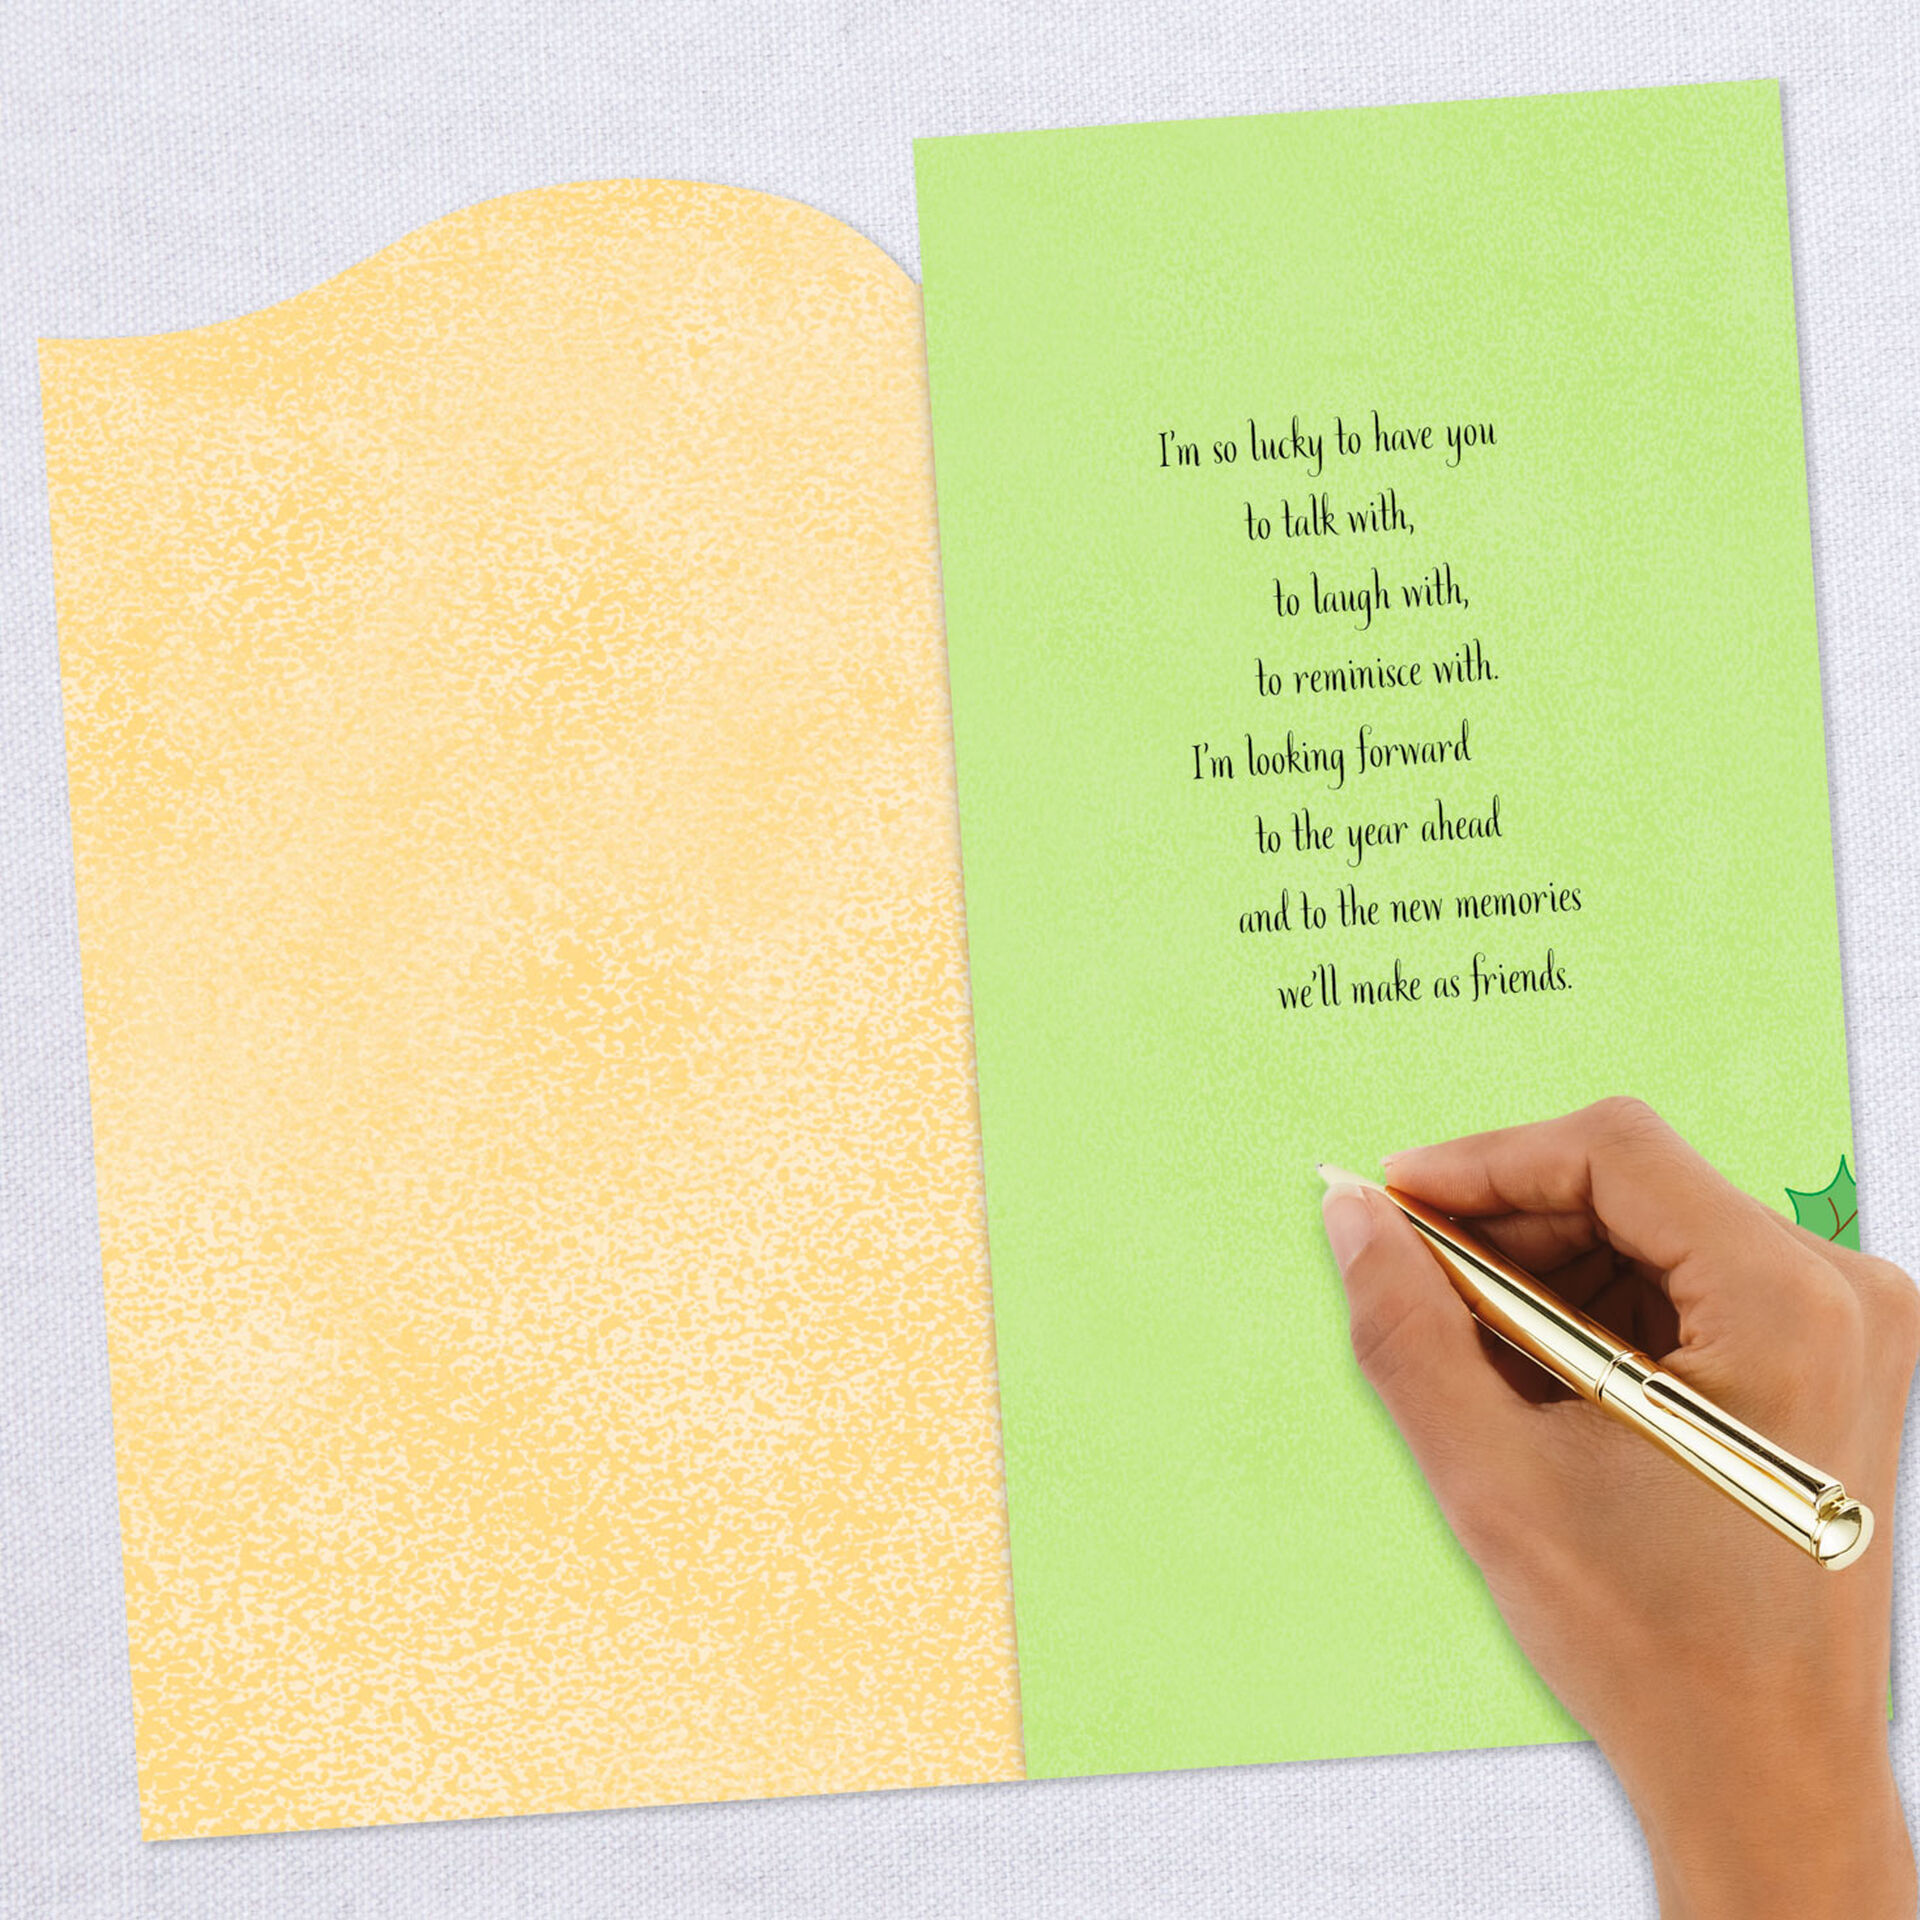 I'm so lucky to have you
to talk with,
to laugh with,
to reminisce with.
I'm looking forward
to the year ahead
and to the new memories
we'll make as friends.